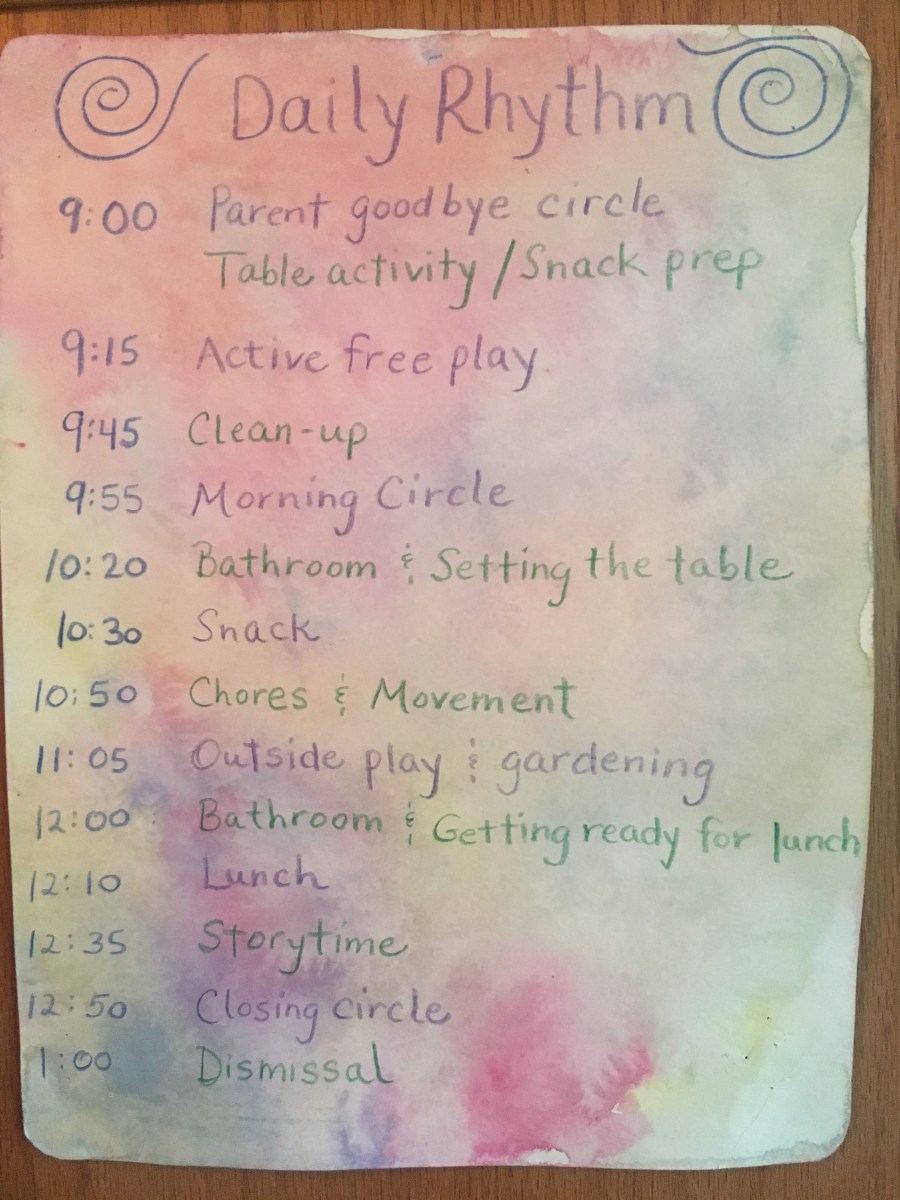 Daily Rhythm
9:00 Parent goodbye circle
Table activity / Snack prep
9:15 Active free play.
9:45 Clean-up
9:55 Morning Circle
10:20 Bathroom & Setting the table
10:30 Snack
10:50 Chores & Movement
11:05 Outside play & gardening
12:00 Bathroom & Getting ready for lunch
12:10 Lunch
12:35 Storytime
12:50 Closing circle
1:00 Dismissal